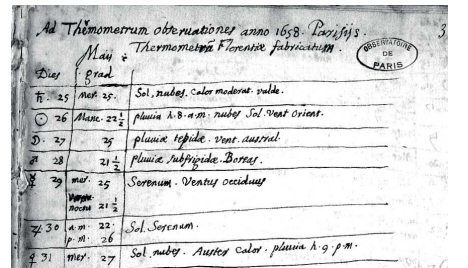 Ad Thermometrum observationes anno 1658. Parisijs.
Thermometrum Florentiæ fabricatum.
3
OBSERVATOIRE
DE
PARIS
Maij
Dies grad
♄. 25 mer. 25. Sol. nubes. Calor moderat. valde.
☉ 26 Mane. 22 1/2 pluvia h. 8. a.m. nubes Sol. vent orient.
☽. 27 25 pluviæ tepidæ. vent. austral.
♂ 28 21 1/2 pluviæ subfrigidæ. Boreas.
☿ 29 mer. 25 Serenum. Ventus occiduus
noctu 21 1/2
♃ 30 a.m. 22. Sol. Serenum.
p.m. 26
♀ 31 mer. 27 Sol. nubes. Auster Calor. pluvia h. 9. p.m.